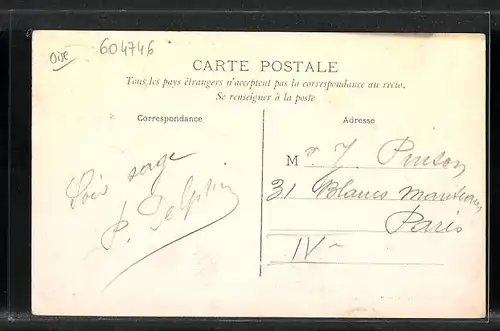 Oise
604746
CARTE POSTALE
Tous les pays étrangers n'acceptent pas la correspondance au recto.
Se renseigner à la poste
Correspondance
Sois sage
P. Delphin
Adresse
Mr. J. Pinson
31 Blancs Manteaux
Paris
IVe